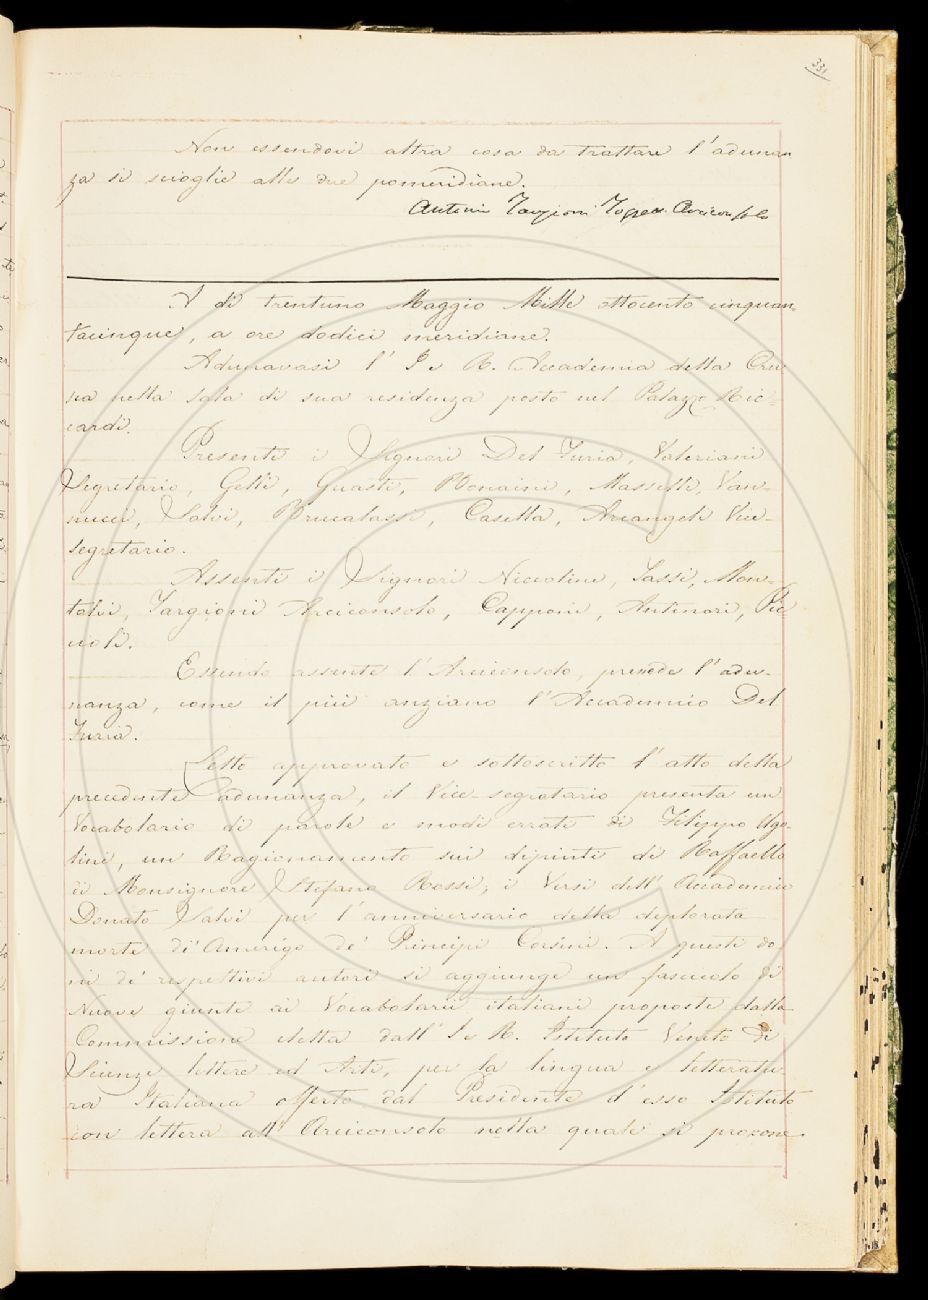 331
Non essendovi altra cosa da trattare l'adunan
za si scioglie alle due pomeridiane.
Antonio Targioni Tozzetti Arciconsolo
A dì trentuno Maggio Mille ottocento cinquan
tacinque, a ore dodici meridiane.
Adunavasi l' I e R. Accademia della Cru
sca nella sala di sua residenza posta nel Palazzo Ric=
cardi.
Presenti i Signori Del Furia, Valeriani
Segretario, Gelli, Guasti, Bonaini, Masselli, Van-
nucci, Salvi, Brucalassi, Casella, Arcangeli Vice-
segretario.
Assenti i Signori Niccolini, Sassi, Mon-
talvi, Targioni Arciconsolo, Capponi, Antinori, Pic
cioli.
Essendo assente l'Arciconsolo, presiede l'adu-
nanza, come il più anziano l'Accademico Del
Furia.
Letto approvato e sottoscritto l'atto della
precedente adunanza, il Vice-segretario presenta un
Vocabolario di parole e modi errati di Filippo Ugo-
lini, un Ragionamento sui dipinti di Raffaello
di Monsignore Stefano Rossi; i Versi dell'Accademico
Donato Salvi per l'anniversario della deplorata
morte di Amerigo de' Principi Corsini. A questi do
ni de' respettivi autori si aggiunge un fascicolo di
Nuove giunte ai Vocabolarii italiani proposte dalla
Commissione eletta dall' I e R. Istituto Veneto di
Scienze lettere ed Arti, per la lingua e letteratu
ra Italiana offerto dal Presidente d'esso Istituto
con lettera all'Arciconsolo nella quale si propone